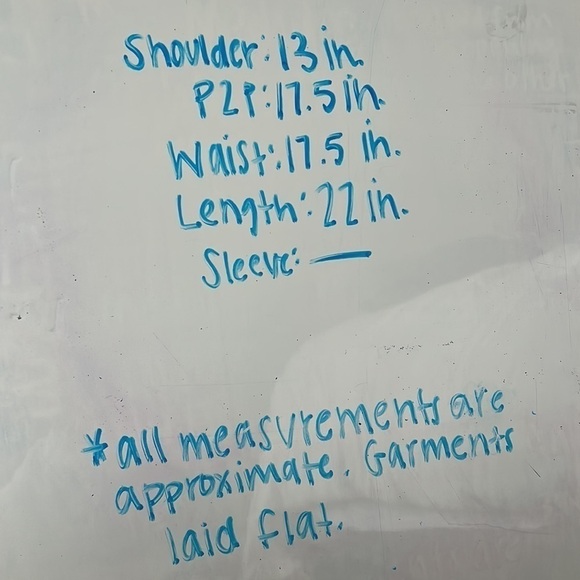 Shoulder: 13 in.
P2P: 17.5 in.
Waist: 17.5 in.
Length: 22 in.
Sleeve: —
* all measurements are
approximate. Garments
laid flat.